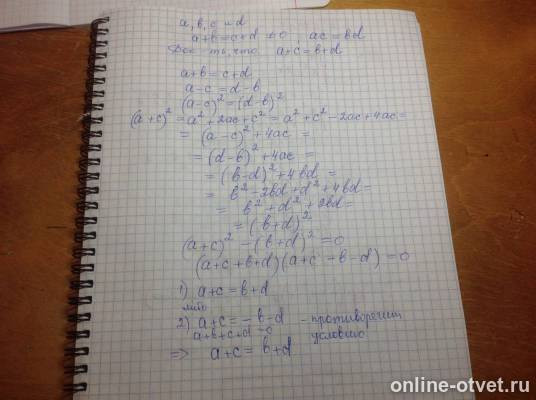 a, b, c и d
a+b = c+d ≠ 0, ac = bd
Док-ть, что a+c = b+d
a+b = c+d
a-c = d-b
(a-c)² = (d-b)²
(a+c)² = a²+2ac+c² = a²+c²-2ac+4ac =
= (a-c)²+4ac =
= (d-b)²+4ac =
= (b-d)²+4bd =
= b²-2bd+d²+4bd =
= b²+d²+2bd =
= (b+d)²
(a+c)² - (b+d)² = 0
(a+c+b+d)(a+c-b-d) = 0
1) a+c = b+d
либо
2) a+c = -b-d - противоречит
a+b+c+d=0 условию
=> a+c = b+d
online-otvet.ru